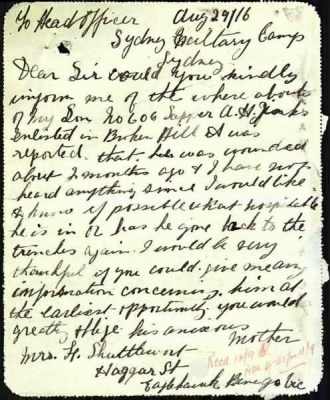 To Head Officer Aug 29/16
Sydney Military Camp
Sydney
Dear Sir could you kindly
inform me of the where abouts
of my Son No 606 Sapper A. H.
enlisted in Broken Hill it was
reported that he was wounded
about 2 months ago & I have not
heard anything since I would like
to know if possible what hospital
he is in or has he gone back to the
trenches again. I would be very
thankful if you could give me any
information concerning him at
the earliest opportunity you would
greatly oblige his anxious
Mother
Mrs. H. Shuttlewort
Haggar St
Eaglehawk Bendigo Vic